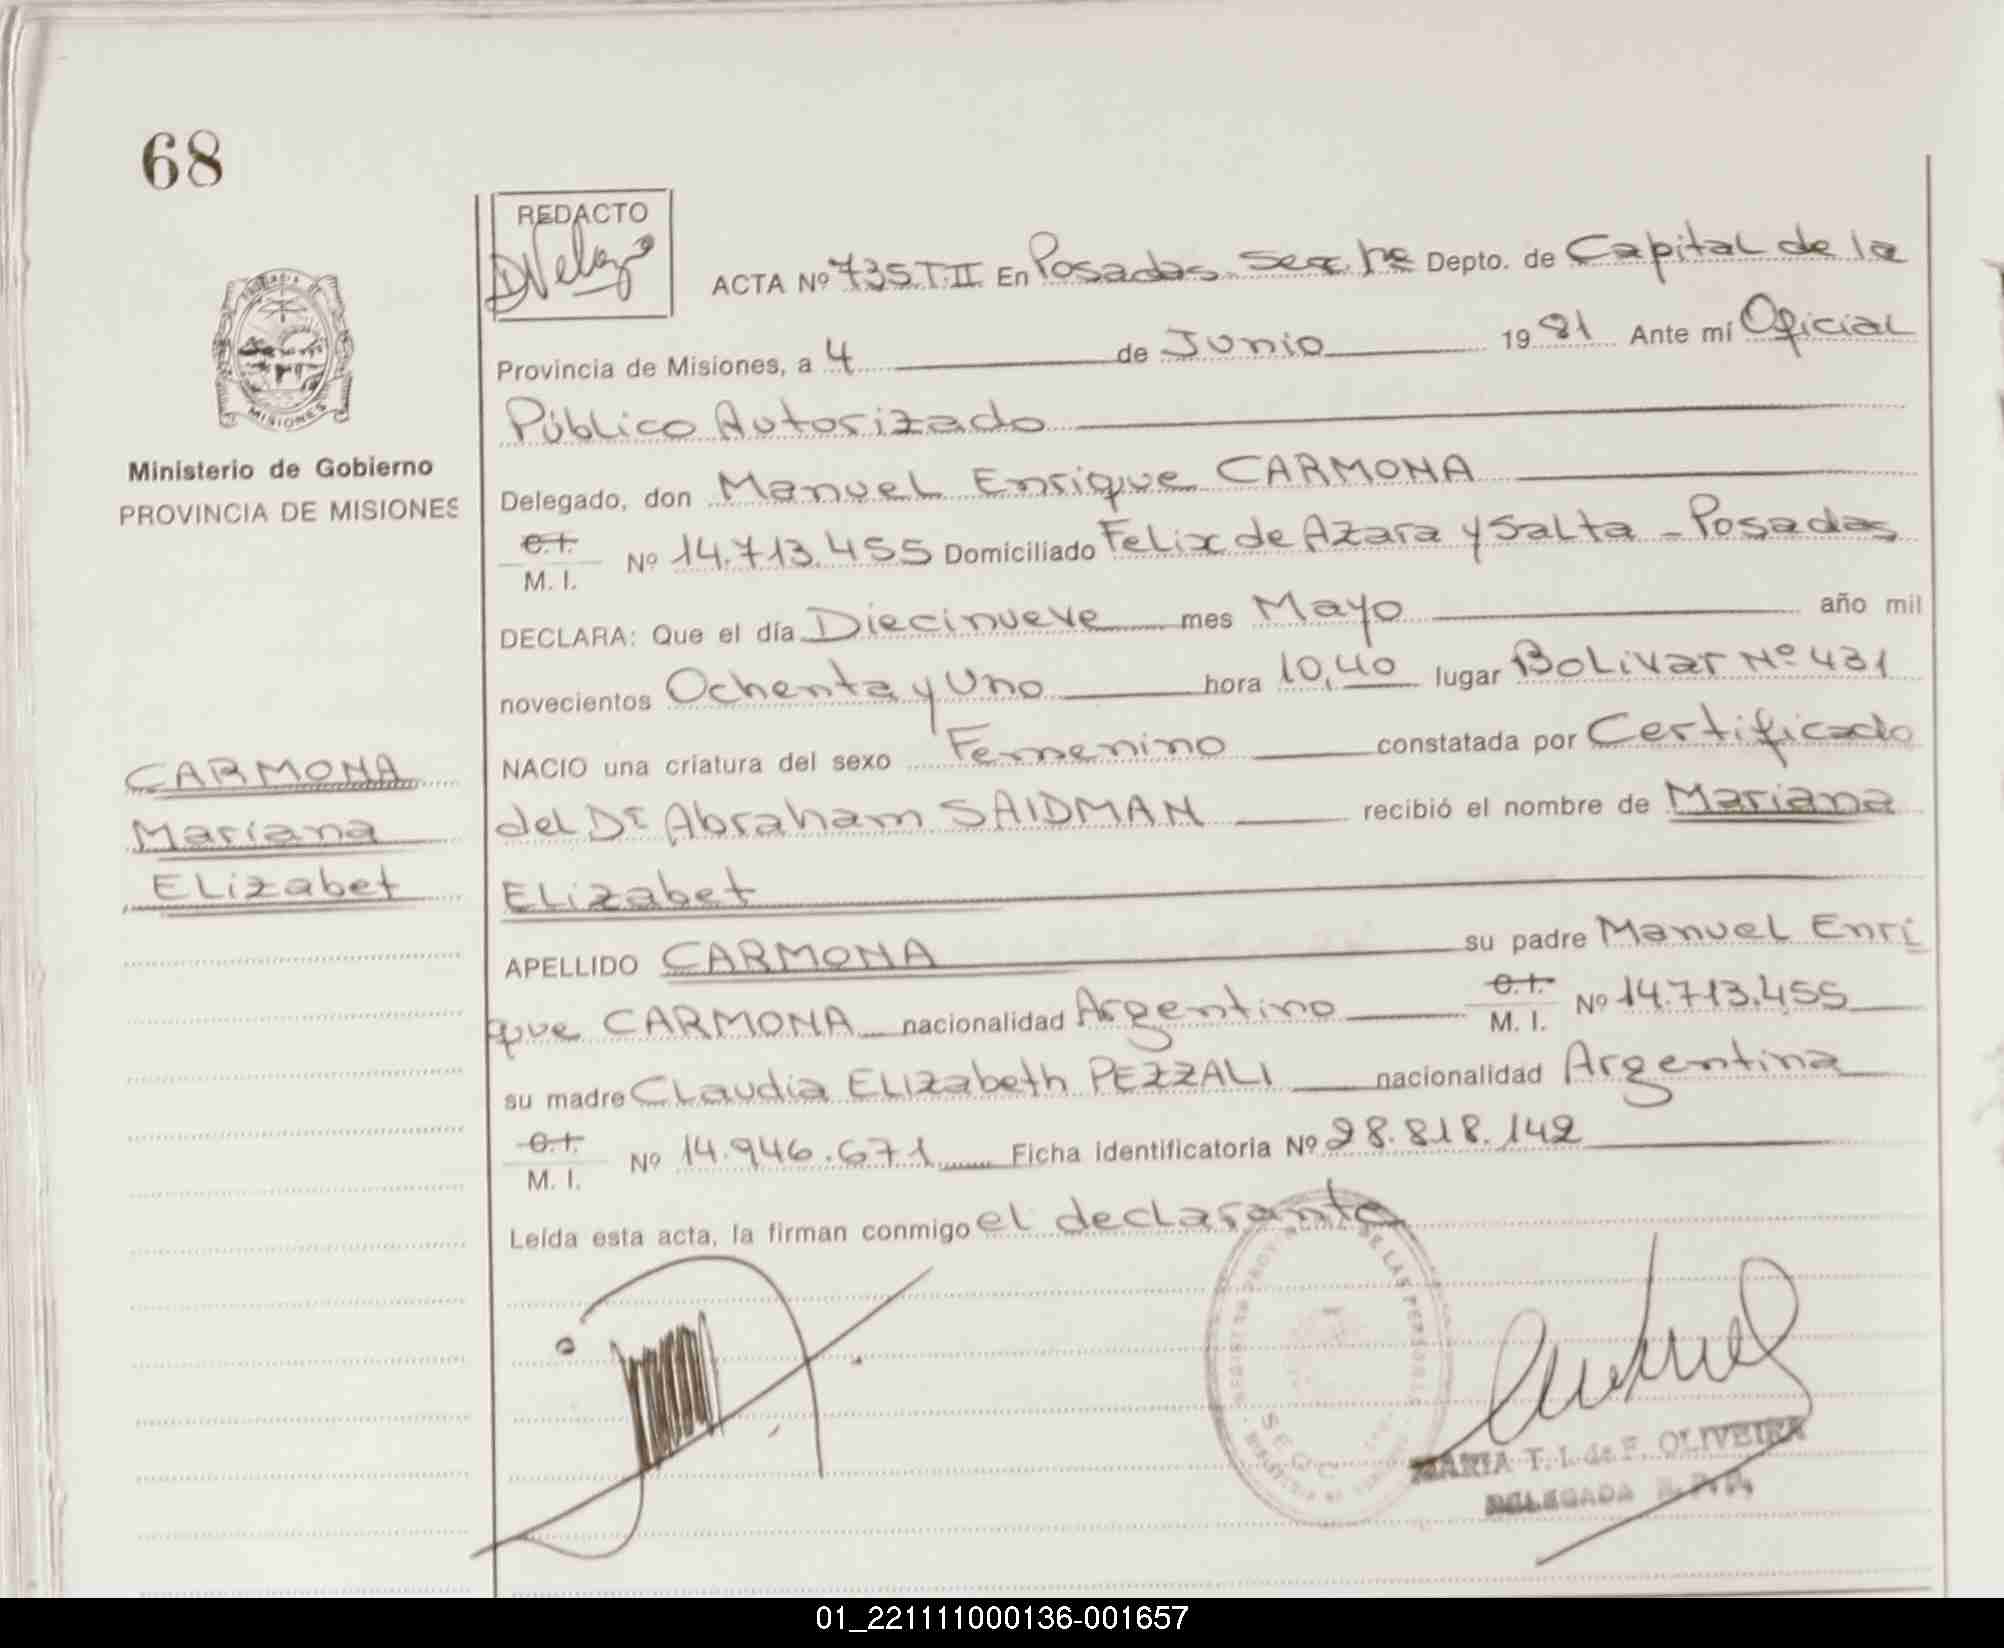 68
REDACTO
DVelazo
ACTA Nº 735.T.II En Posadas Depto. de Capital de la
Provincia de Misiones, a 4 de Junio 1981 Ante mí Oficial
Público Autorizado
Delegado, don Manuel Enrique CARMONA
C.I.
M. I. Nº 14.713.455 Domiciliado Felix de Azara y Salta - Posadas
DECLARA: Que el día Diecinueve mes Mayo año mil
novecientos Ochenta y Uno hora 10,40 lugar Bolivar Nº 431
NACIO una criatura del sexo Femenino constatada por Certificado
del Dr Abraham SAIDMAN recibió el nombre de Mariana
Elizabet
APELLIDO CARMONA su padre Manuel Enri
que CARMONA nacionalidad Argentino C.I. M. I. Nº 14.713.455
su madre Claudia Elizabeth PEZZALI nacionalidad Argentina
C.I.
M. I. Nº 14.946.671 Ficha identificatoria Nº 28.818.142
Leída esta acta, la firman conmigo el declarante
MISIONES
Ministerio de Gobierno
PROVINCIA DE MISIONES
CARMONA
Mariana
Elizabet
DE LAS PERSONAS
MARIA T. I. de F. OLIVEIRA
DELEGADA R. P. P.
01_221111000136-001657